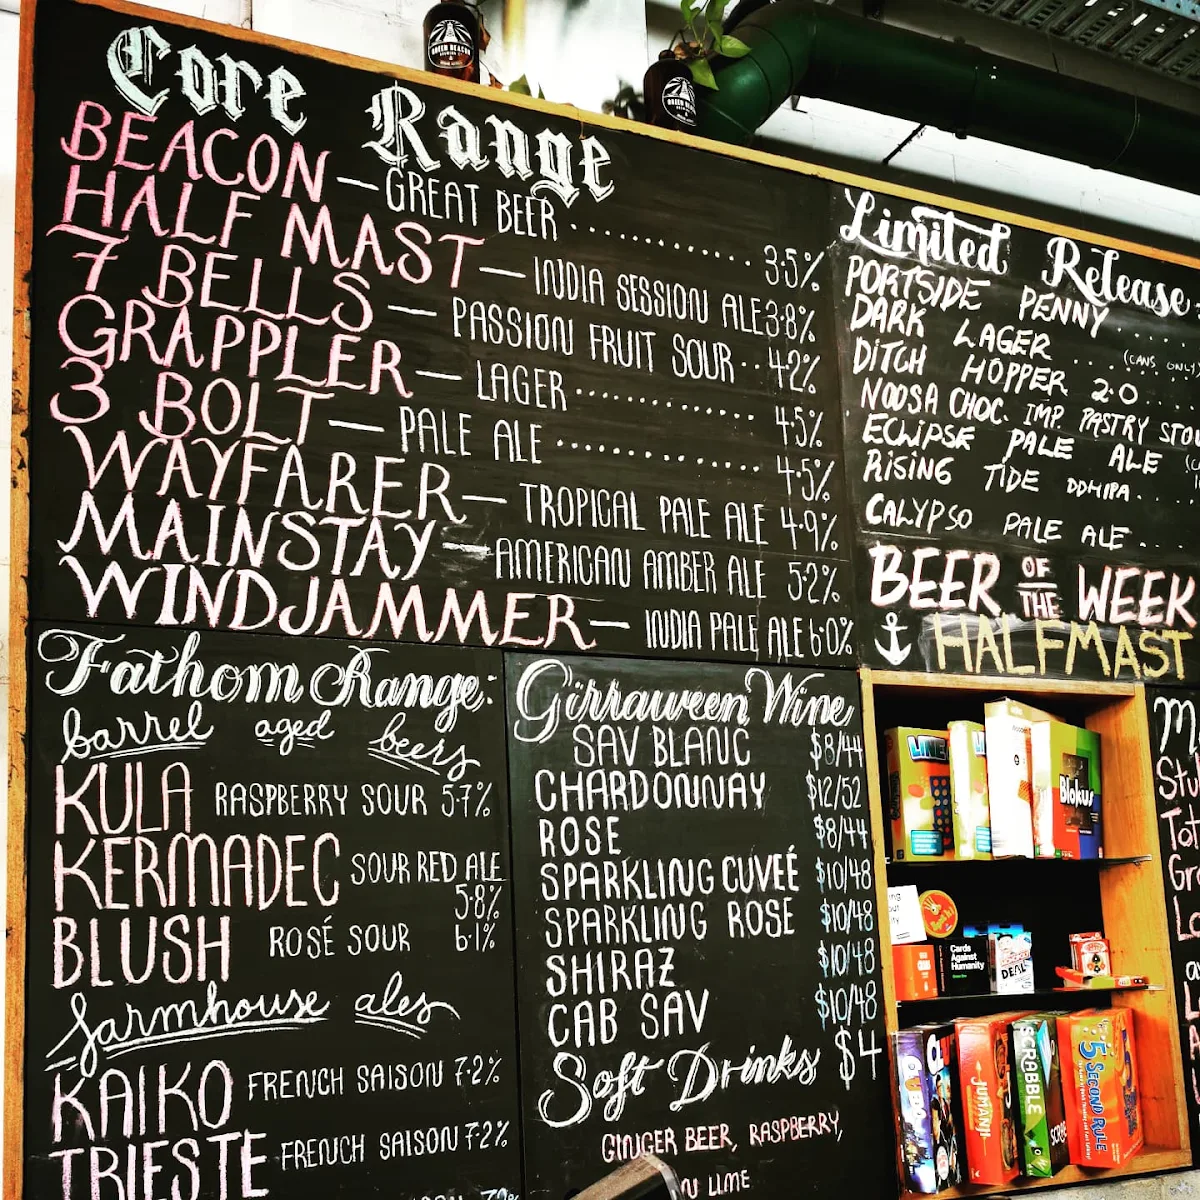 Core Range
BEACON — GREAT BEER ............... 3.5%
HALF MAST — INDIA SESSION ALE 3.8%
7 BELLS — PASSION FRUIT SOUR .. 4.2%
GRAPPLER — LAGER ............... 4.5%
3 BOLT — PALE ALE ............... 4.5%
WAYFARER — TROPICAL PALE ALE 4.9%
MAINSTAY — AMERICAN AMBER ALE 5.2%
WINDJAMMER — INDIA PALE ALE 6.0%
Limited Release
PORTSIDE PENNY ....
DARK LAGER ... (CANS ONLY)
DITCH HOPPER 2.0 ....
NOOSA CHOC. IMP. PASTRY
ECLIPSE PALE ALE
RISING TIDE DDHIPA ....
CALYPSO PALE ALE ....
BEER OF THE WEEK
HALFMAST
Fathom Range:
barrel aged beers
KULA RASPBERRY SOUR 5.7%
KERMADEC SOUR RED ALE 5.8%
BLUSH ROSÉ SOUR 6.1%
farmhouse ales
KAIKO FRENCH SAISON 7.2%
TRIESTE FRENCH SAISON 7.2%
Girraween Wine
SAV BLANC $8/44
CHARDONNAY $12/52
ROSE $8/44
SPARKLING CUVEÉ $10/48
SPARKLING ROSE $10/48
SHIRAZ $10/48
CAB SAV $10/48
Soft Drinks $4
GINGER BEER, RASPBERRY,
LIME
GREEN BEACON
Blokus
Cards Against Humanity
DEAL
JUMANJI
SCRABBLE
5 SECOND RULE